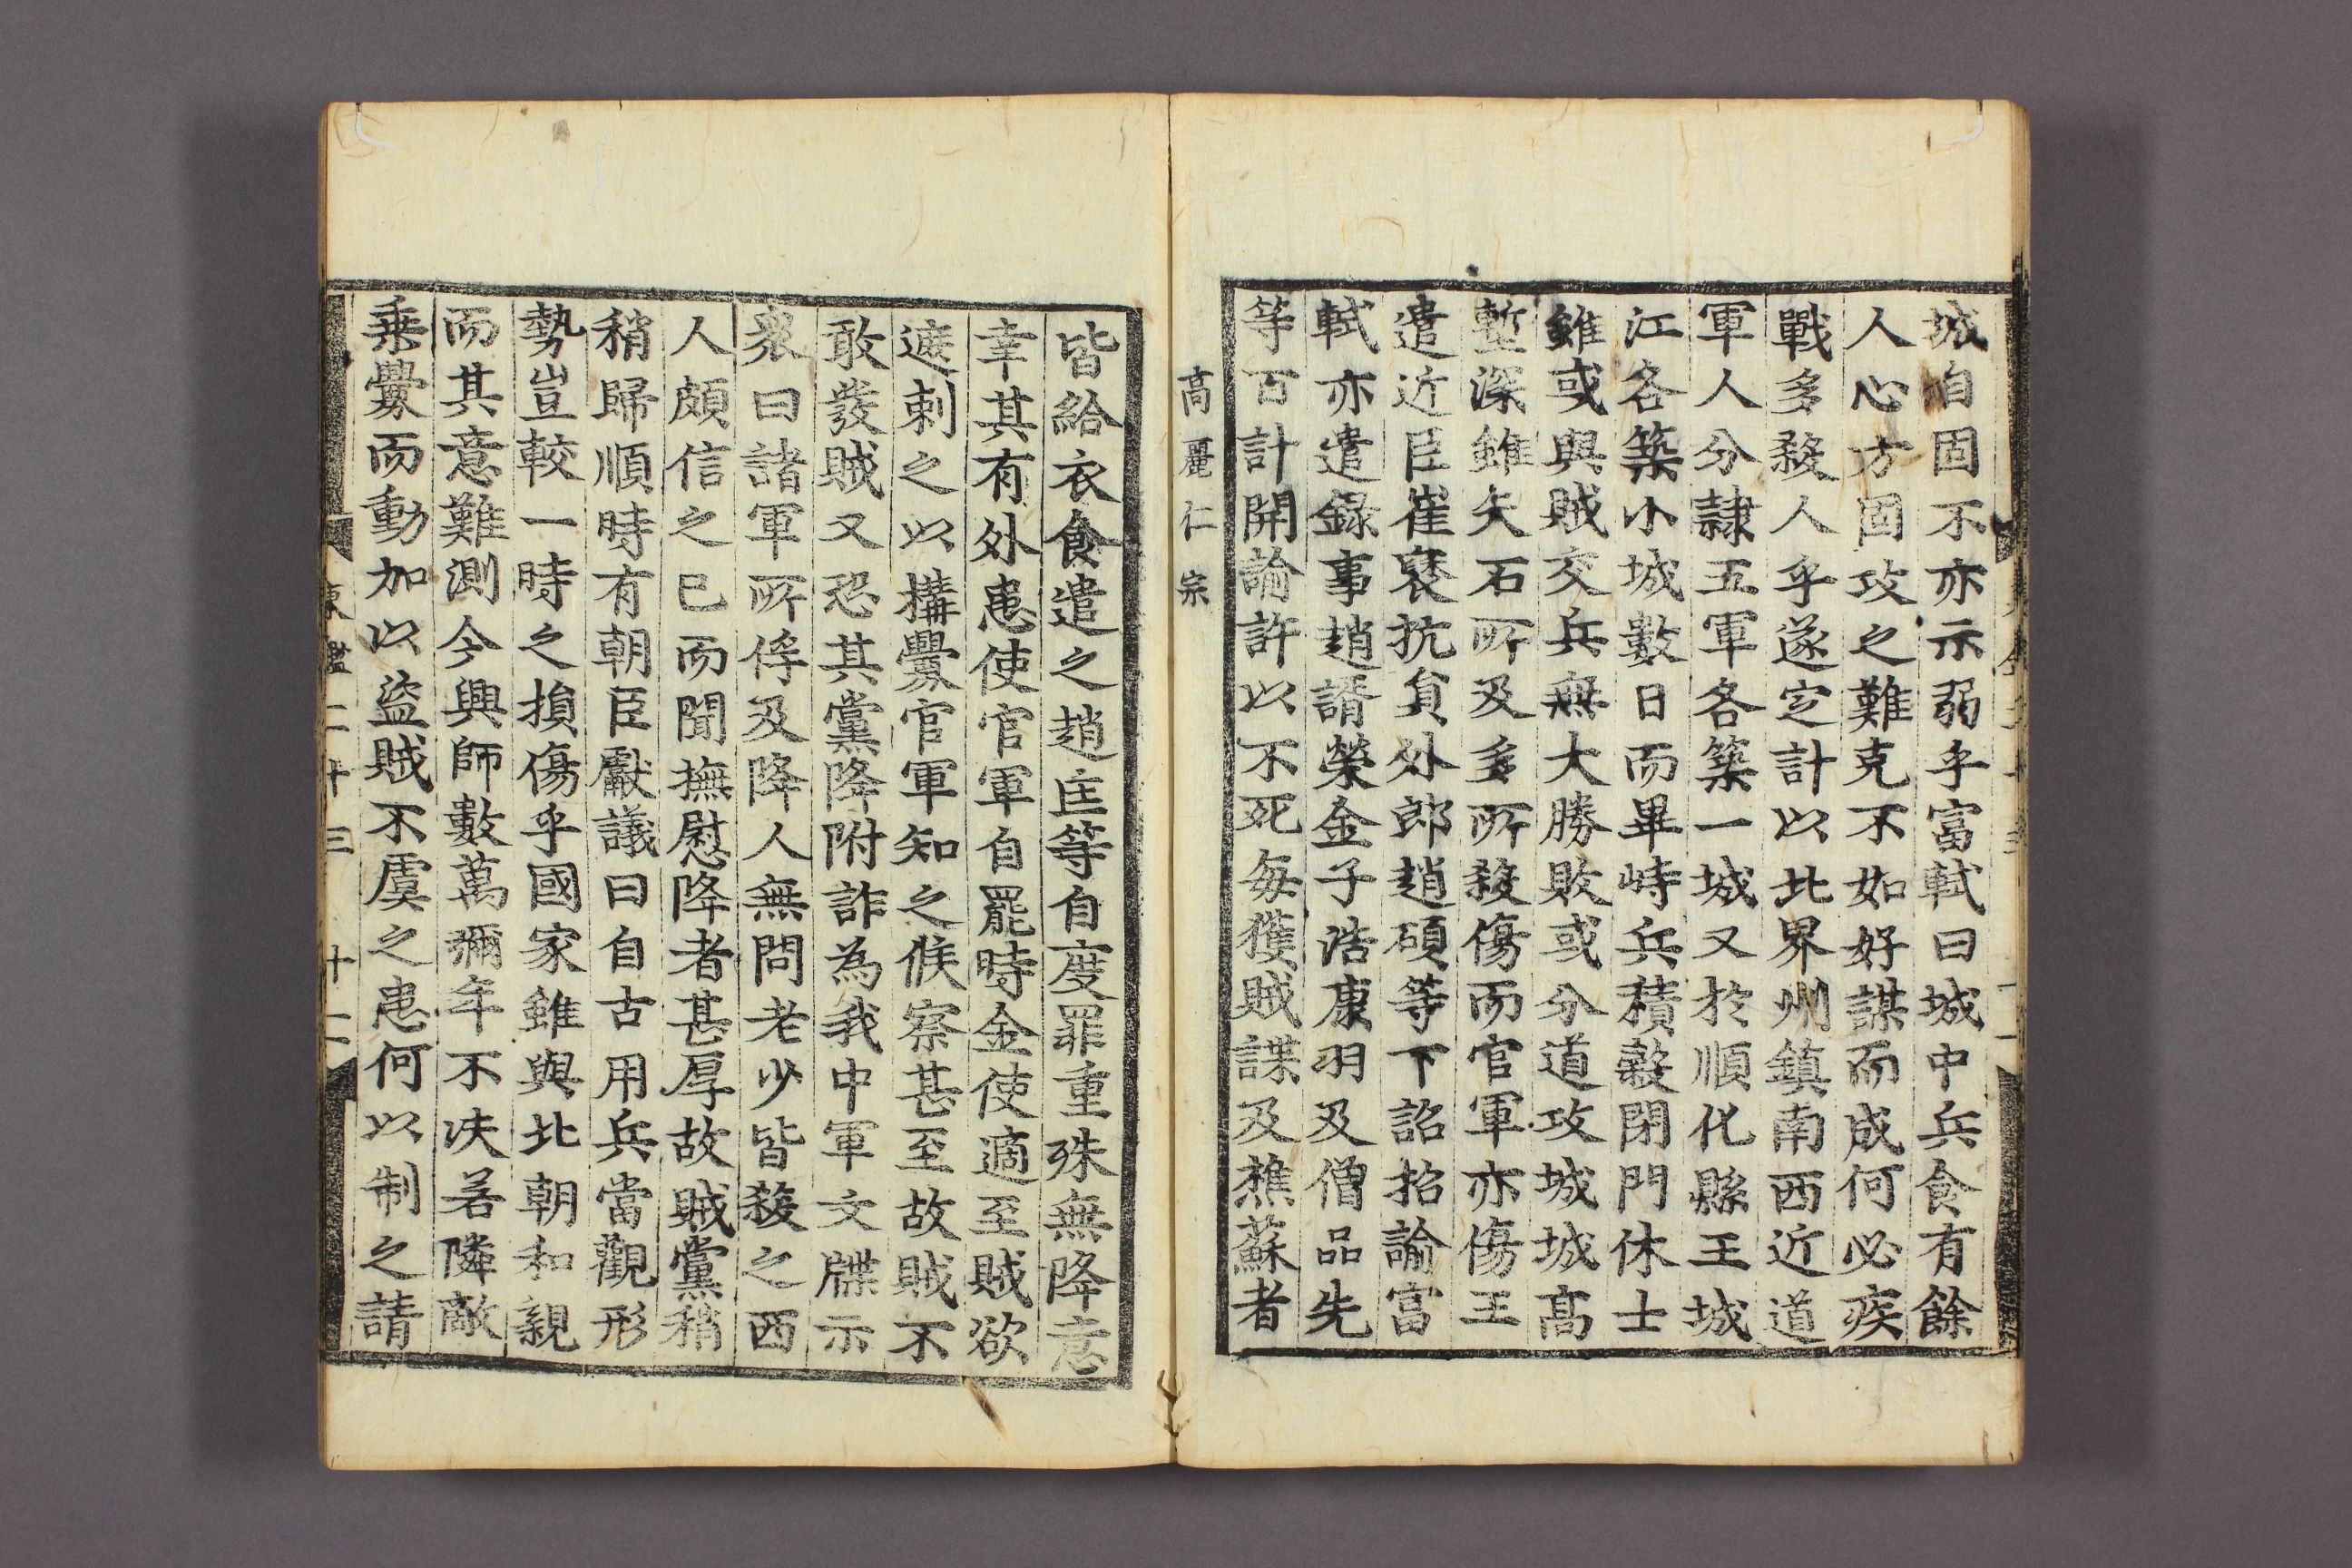 城自固不亦示弱乎富軾曰城中兵食有餘
人心方固攻之難克不如好謀而成何必疾
戰多殺人乎遂定計以北界州鎮南西近道
軍人分隷五軍各築一城又於順化縣王城
江各築小城數日而畢峙兵積穀閉門休士
雖或與賊交兵無大勝敗或分道攻城城高
塹深雖矢石所及多所殺傷而官軍亦傷王
遣近臣崔褎抗貟外郎趙碩等下詔招諭富
軾亦遣錄事趙諝榮金子浩康羽及僧品先
等百計開諭許以不死每獲賊諜及樵蘇者
高麗仁宗
皆給衣食遣之趙匡等自度罪重殊無降意
幸其有外患使官軍自罷時金使適至賊欲
遮刺之以構釁官軍知之候察甚至故賊不
敢發賊又恐其黨降附詐為我中軍文牒示
衆曰諸軍所俘及降人無問老少皆殺之西
人頗信之已而聞撫慰降者甚厚故賊黨稍
稍歸順時有朝臣獻議曰自古用兵當觀形
勢豈較一時之損傷乎國家雖與北朝和親
而其意難測今興師數萬彌年不决若隣敵
乗釁而動加以盜賊不虞之患何以制之請
東鑑二十三 十二